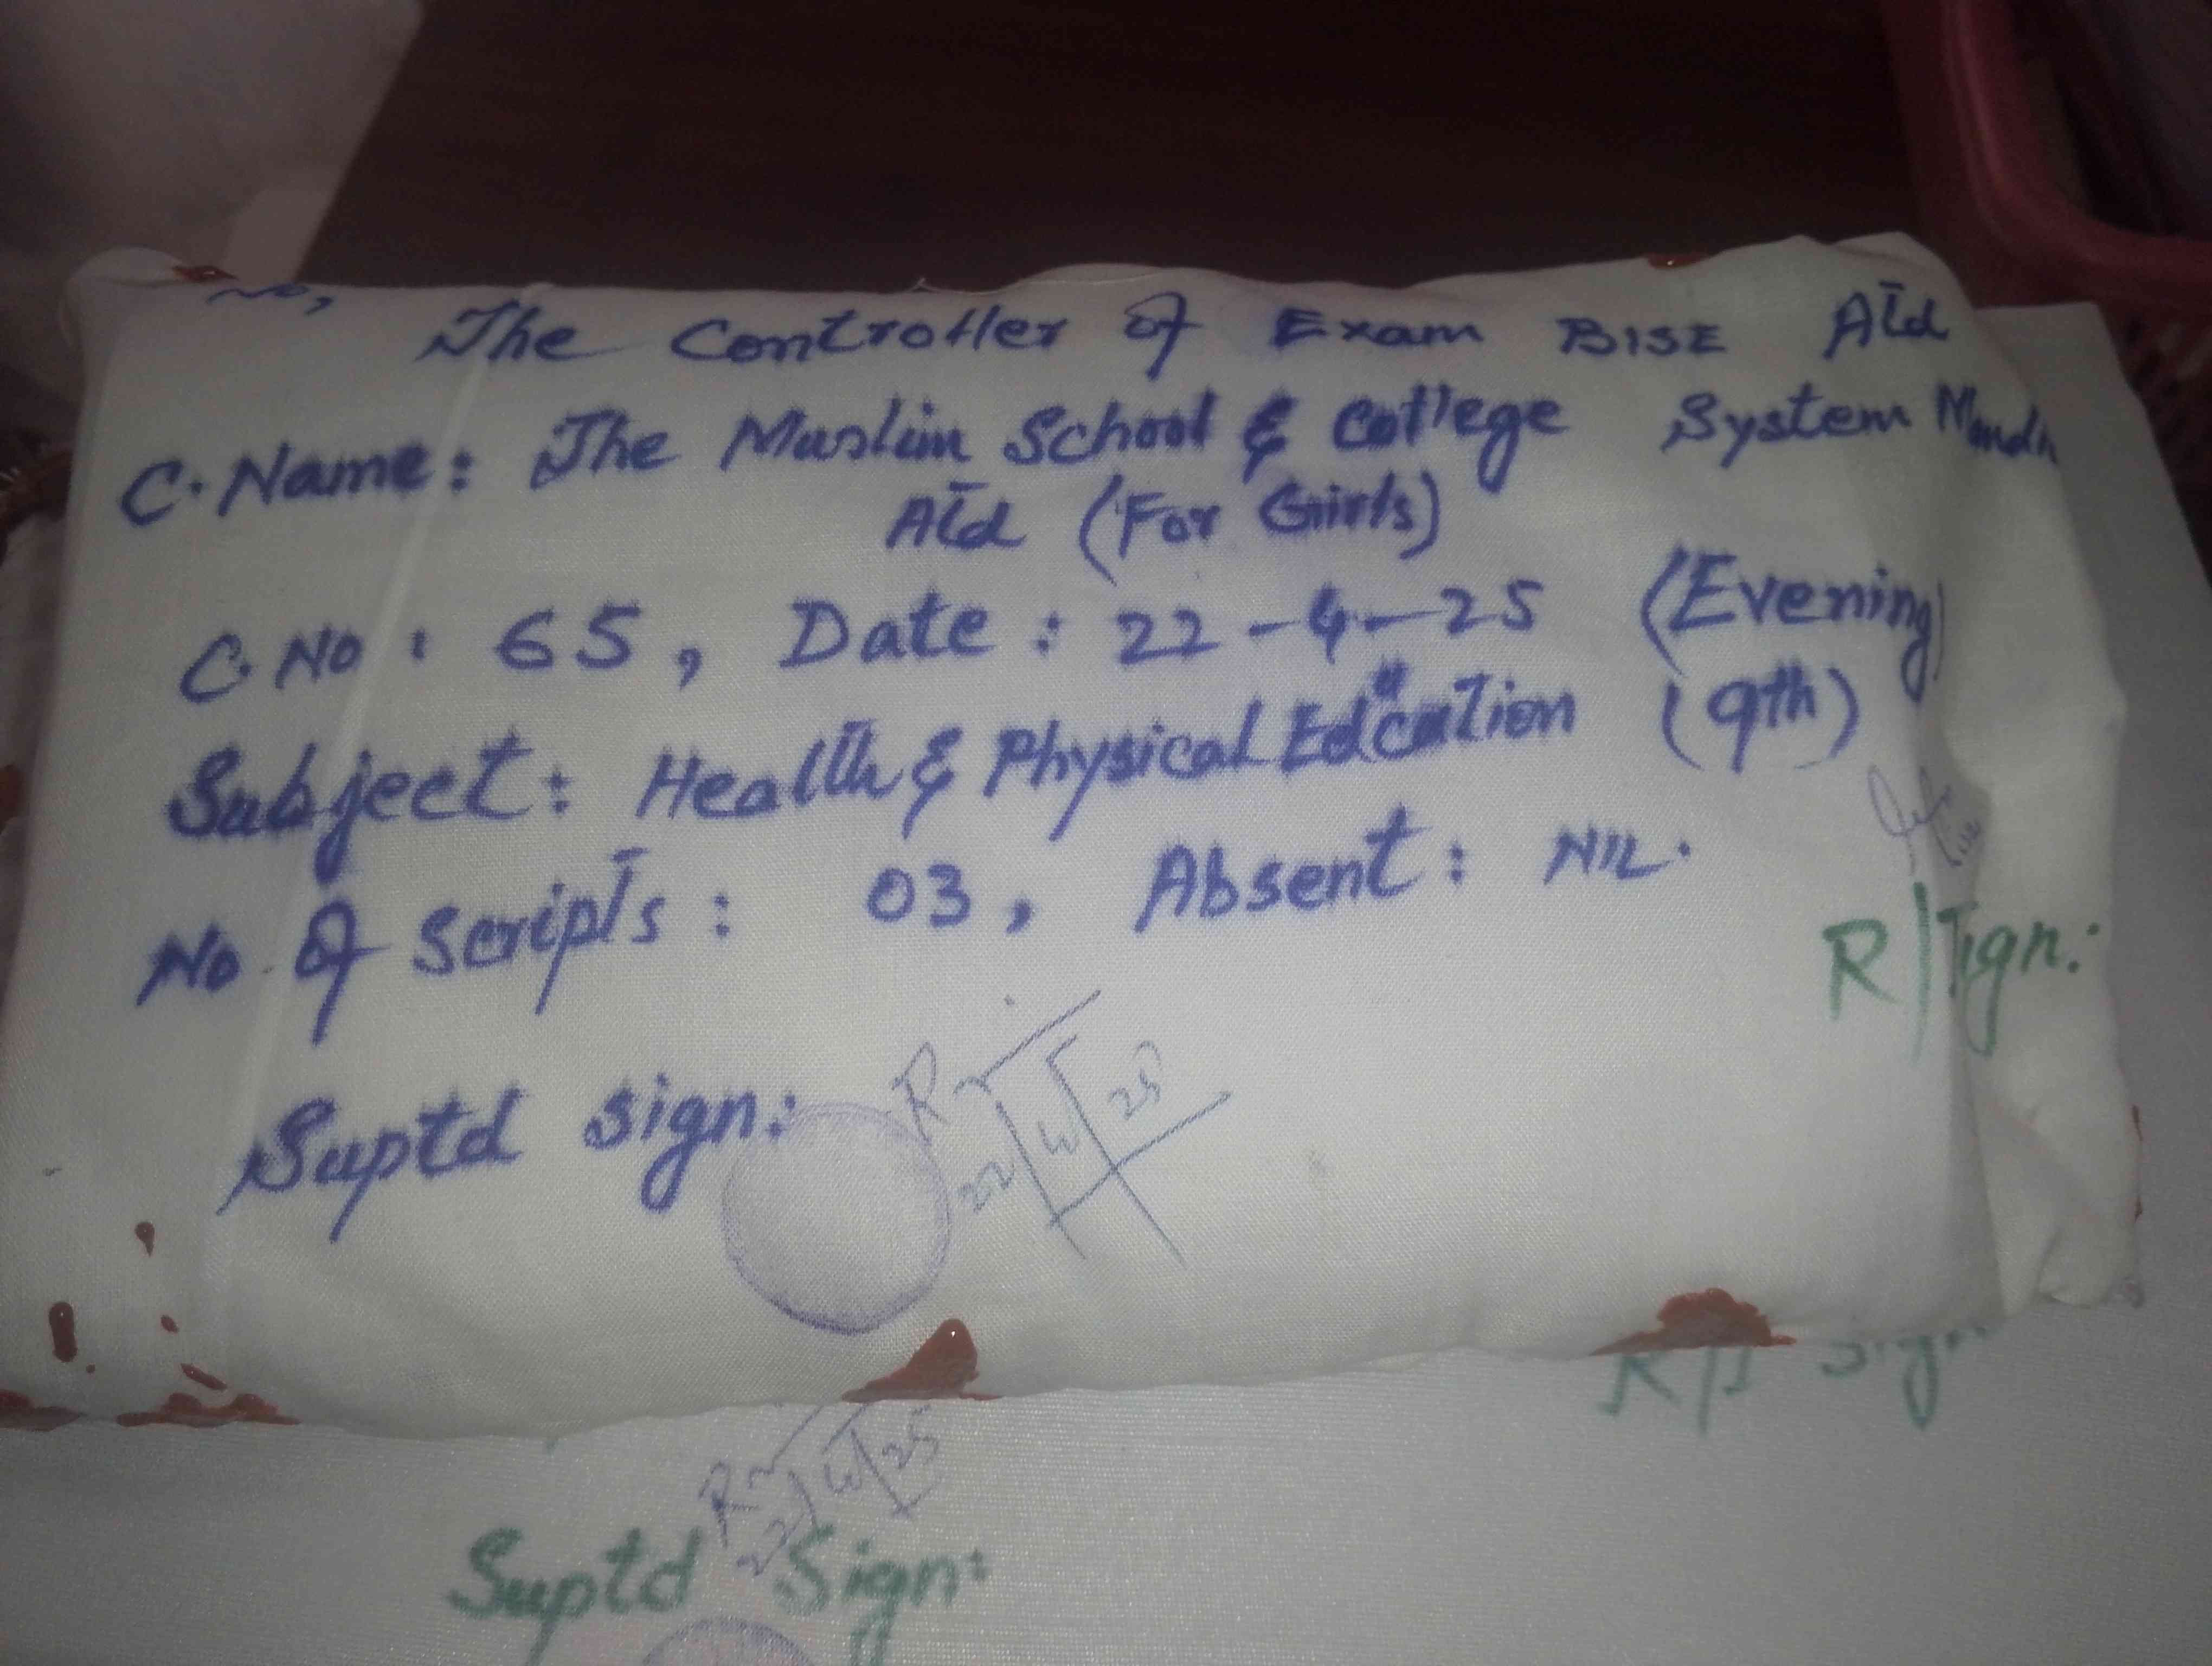 The Controller of Exam BISE Atd
C. Name: The Muslim School & College System Mandi
Atd (For Girls)
C. No : 65, Date : 22-4-25 (Evening)
Subject: Health & Physical Education (9th)
No. of scripts : 03, Absent : NIL.
R/Sign:
Suptd sign:
22/4/25
R/I Sign
22/4/25
Suptd Sign: